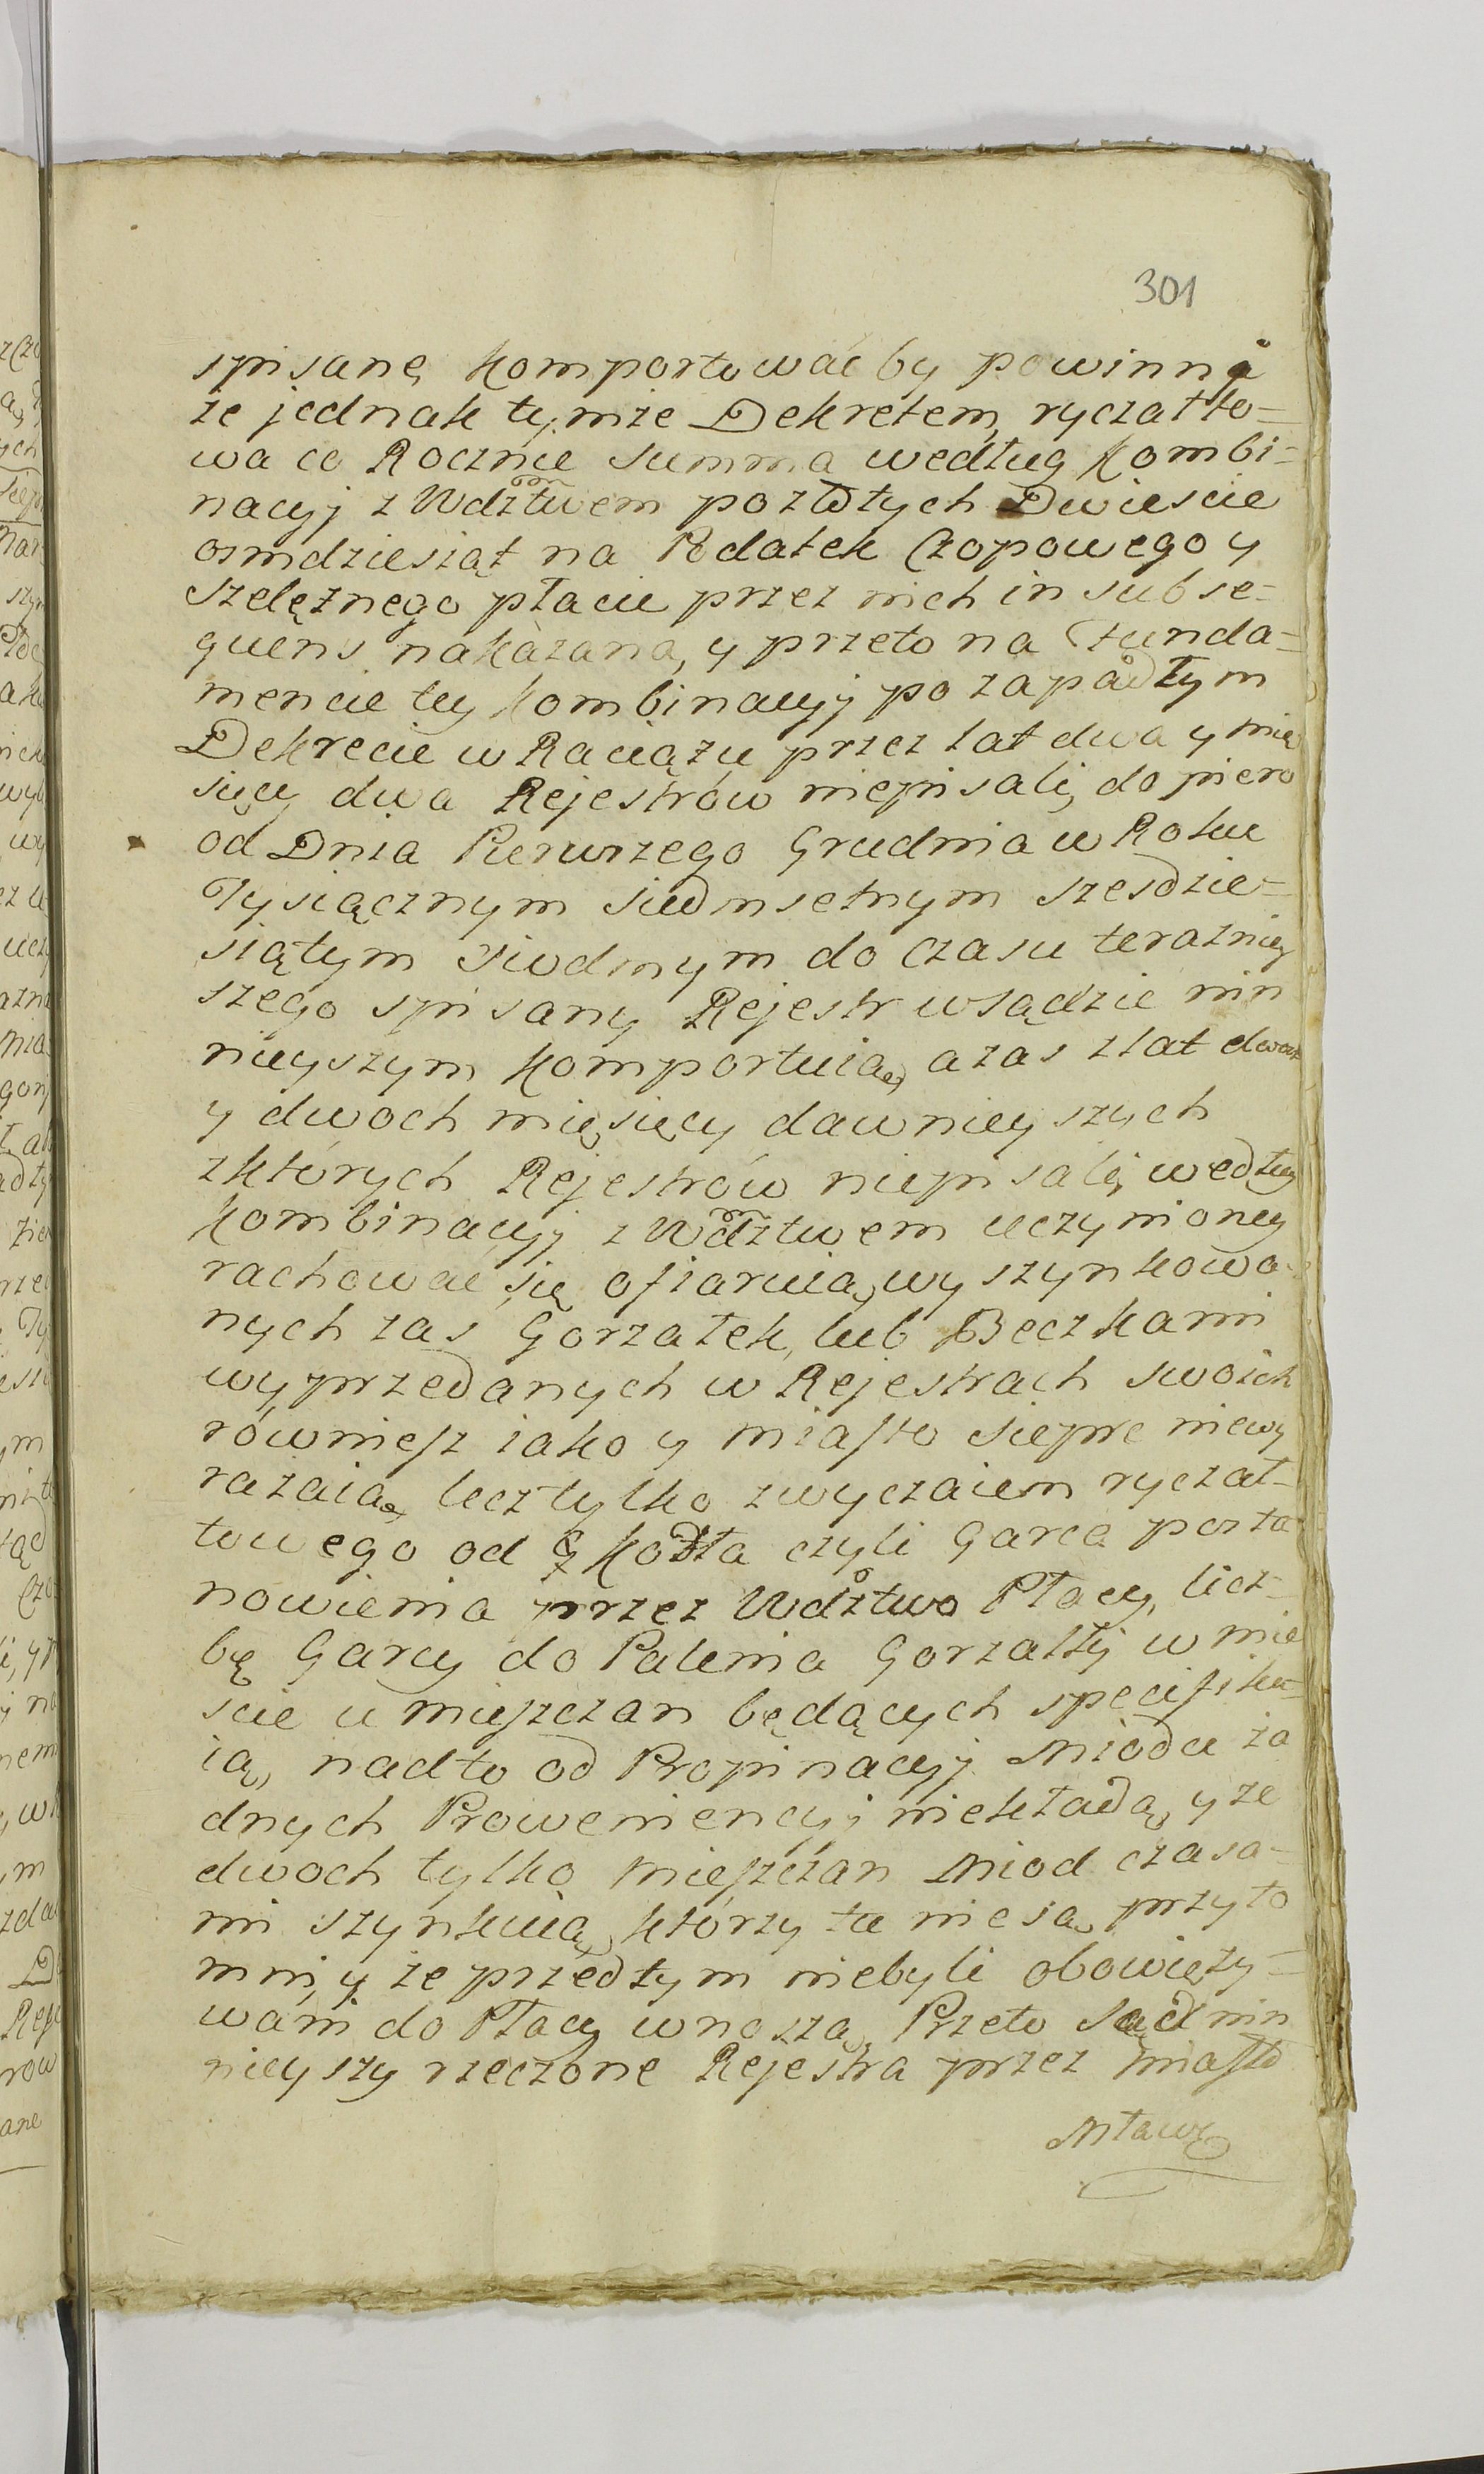 301
spisane komportować by powinna
że jednak tymże Dekretem ryczałto-
wa co Rocznie summa według kombi-
nacyj z Wdztwem po złotych Dwieście
osmdziesiąt na Podatek Czopowego y
szelężnego płacic przez nich in subse-
quens nakazana, y przeto na Funda-
mencie tey kombinacyj po zapadłym
Dekrecie w Raciążu przez lat dwa y mie
sięcy dwa Rejestrów niepisali, dopiero
od Dnia Pierwszego Grudnia w Roku
Tysiącznym siedmsetnym szesdzie-
siątym siodmym do czasu terazniey
szego spisany Rejestr w sądzie nin
nieyszym komportuią, a zas z lat dwoch
y dwoch miesięcy dawnieyszych
z których Rejestrów niepisali, według
kombinacyj z Wdztwem uczynioney
rachować się ofiaruią, wyszynkowa-
nych zas Gorzałek, lub Beczkami
wyprzedanych w Rejestrach swoich
równiesz iako y miasto Sierpc niewy
rażaią, lecz tylko zwyczaiem ryczał-
towego od kotła czyli Garca posta
nowienia przez Wdztwo Płacy, licz-
bę Garcy do Palenia Gorzałki w mie
scie u mieszczan będących specifiku-
ią, nadto od Propinacyj Miodu ża
dnych Proweniencyj niekładą, y że
dwoch tylko mieszczan Miod czasa-
mi szynkuią, którzy tu nie są przyto
mni, y że przedtym niebyli obowięzy-
wani do Płacy wnoszą. Przeto Sąd nin
nieyszy rzeczone Rejestra przez miasto
Mławę